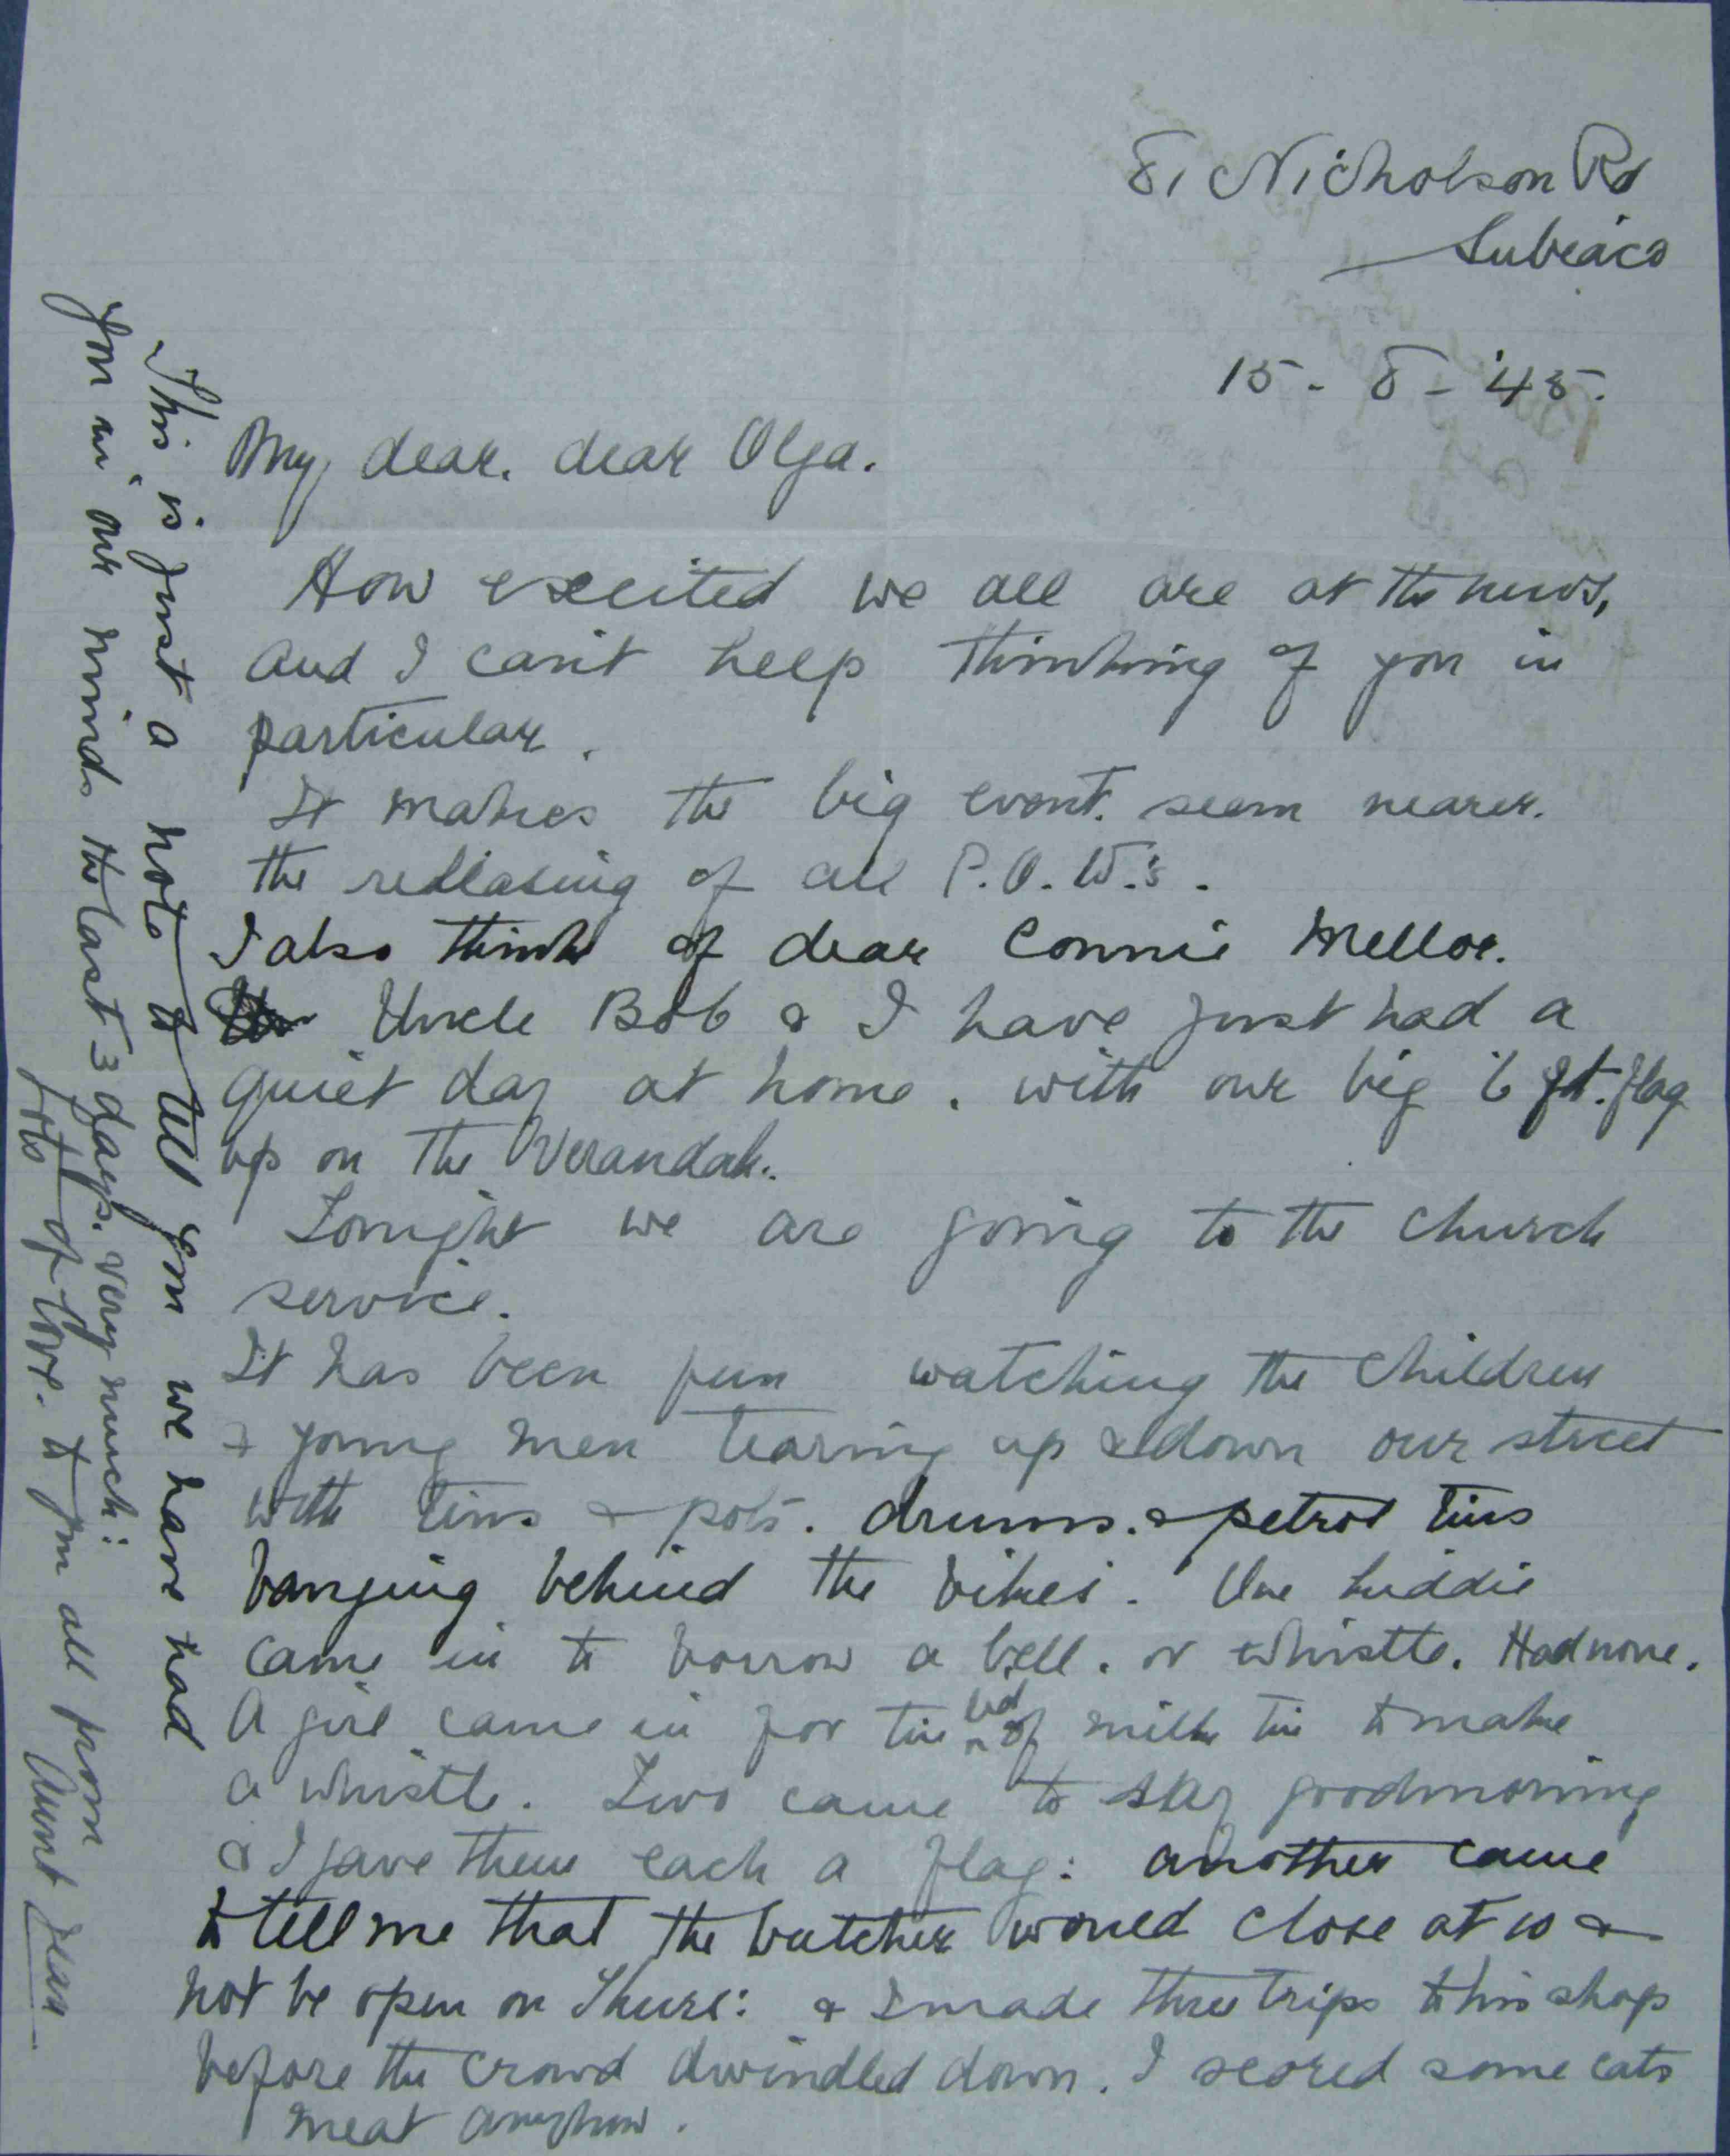 8, Nicholson Rd
Subiaco
15 - 8 - '45.
My dear. dear Olga.
How excited we all are at the news,
and I can't help thinking of you in
particular.
It makes the big event. seem nearer.
the releasing of all P.O.W.'s.
I also think of dear Connie Mellor.
Uncle Bob & I have just had a
quiet day at home. with our big 6 ft. flag
up on the Verandah.
Tonight we are going to the church
service.
It has been fun watching the children
& young men tearing up & down our street
with tins & pots. drums. & petrol tins
banging behind the bikes. One kiddie
came in to borrow a bell. or whistle. Had none.
A girl came in for tin lid of milk tin to make
a whistle. Two came to say goodmorning
& I gave them each a flag: another came
to tell me that the butcher would close at 10 &
not be open on Thurs: & I made three trips to his shop
before the crowd dwindled down. I scored some cats
meat anyhow.
This is just a note to tell you we have had
you in our minds the last 3 days. very much:
Lots of love. to you all from
Aunt Jean